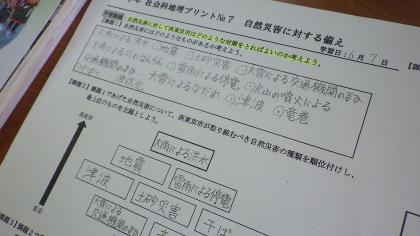 年 社会科地理プリント№7 自然災害に対する備え
学習日(6月7日
学習課題 自然災害に対して西東京市はどのような対策をとればよいのか考えよう。
【課題1】自然災害にはどのようなものがあるか考えよう。
大雨による洪水 地震 土砂災害 大雪による交通機関のまひ
大雨による川のはんらん 雷雨による停電 火山の噴火による
交通機関のまひ 大雪によるなだれ 津波 竜巻
干ばつ 液状化
【課題2】課題1であげた自然災害について、西東京市が取り組むべき自然災害の種類を順位付けし、
最上位のものを主題としよう。
重要度
大雨による洪水
地震 雷雨による停電
津波 土砂災害 竜巻
大雪による
交通機関のまひ
干ばつ
高度
【課題3】課題2